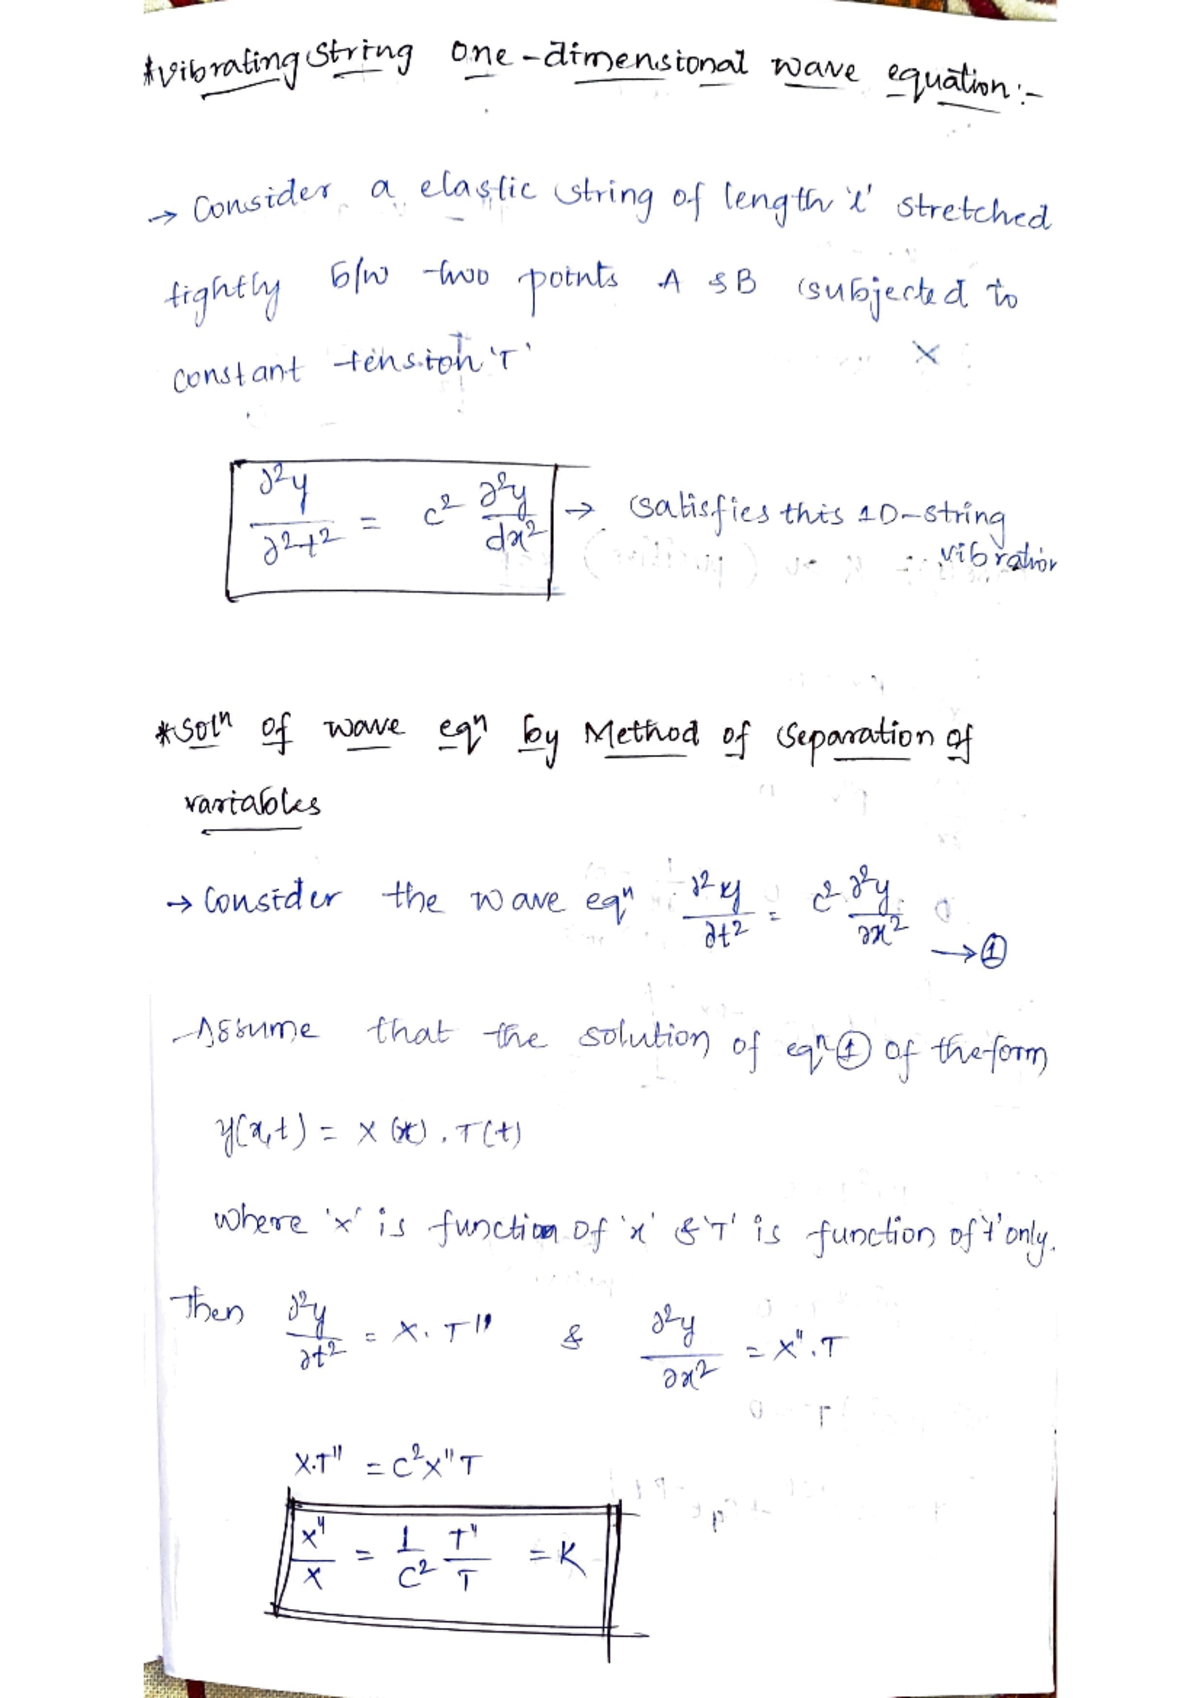 *Vibrating String One-dimensional wave equation:-
→ Consider a elastic string of length 'l' stretched
tightly b/w two points A & B subjected to
constant tension 'T'
∂²y/∂²t² = c² ∂²y/dx² → satisfies this 1D-string
vibration
*Solⁿ of wave eqⁿ by Method of Separation of
variables
→ Consider the wave eqⁿ ∂²y/∂t² = c² ∂²y/∂x² → ①
Assume that the solution of eqⁿ ① of the form
y(x,t) = X(x) . T(t)
where 'x' is function of 'x' & 'T' is function of 't' only.
Then ∂²y/∂t² = X. T'' & ∂²y/∂x² = X''.T
X.T'' = c²X''T
X''/X = 1/C² T''/T = K